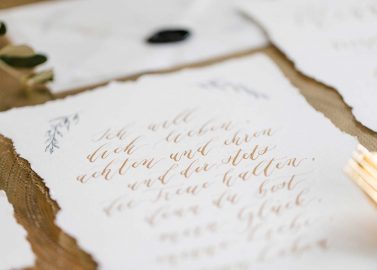 Ich will
dich lieben,
achten und ehren
und dir stets
die Treue halten,
denn du bist
mein Glück,
meine
mein